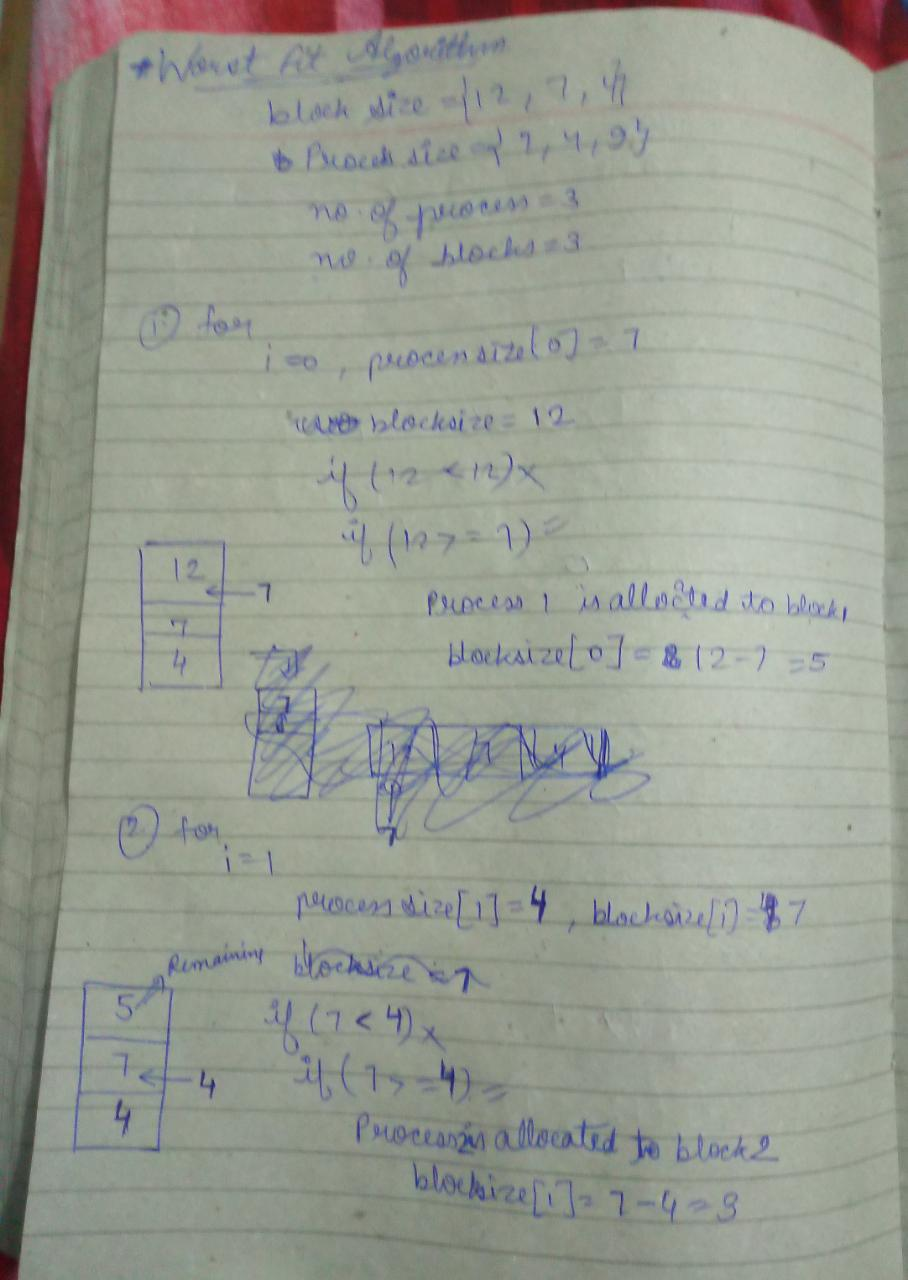 * Worst fit Algorithm
block size = {12, 7, 4}
Process size = {7, 4, 9}
no. of process = 3
no. of blocks = 3
① for
i=0, process size[0] = 7
blocksize = 12
if (12 < 12) ×
if (12 >= 7) =
12 ← 7
7
4
Process 1 is allocated to block 1
blocksize[0] = 12-7 = 5
② for
i=1
process size[1] = 4, blocksize[1] = 7
Remaining
5
7 ← 4
4
if (7 < 4) ×
if (7 >= 4) =
Process 2 is allocated to block 2
blocksize[1] = 7-4 = 3